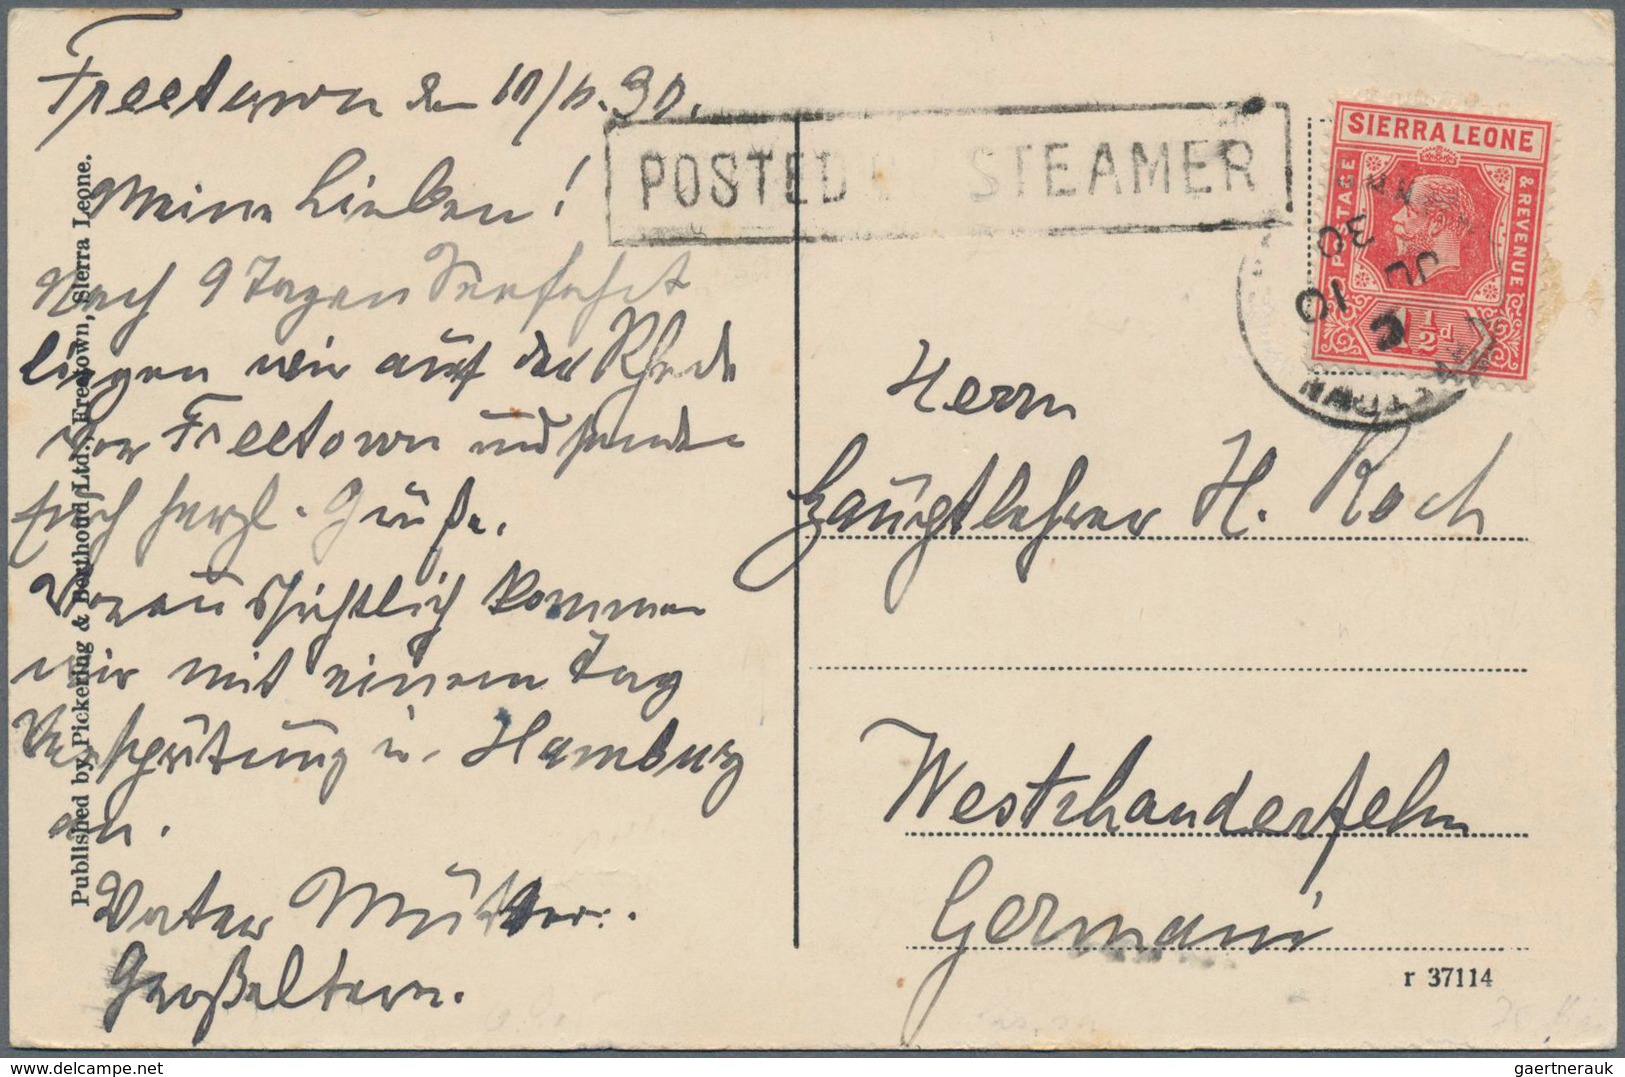 Freetown den 10/6.30.
Meine Lieben!
Nach 9 Tagen Seefahrt
liegen wir auf der Rhede
vor Freetown und senden
Euch herzl. Grüße.
Voraussichtlich kommen
wir mit einem Tag
Verspätung in Hamburg
an.
Vater Mutter.
Großeltern.
Published by Pickering & Berthoud Ltd., Freetown, Sierra Leone.
POSTED STEAMER
SIERRA LEONE
POSTAGE
& REVENUE
1½d
30
JU
10
Herrn
Hauptlehrer H. Roch
Westrhauderfehn
Germani
r 37114
gaertnerauk